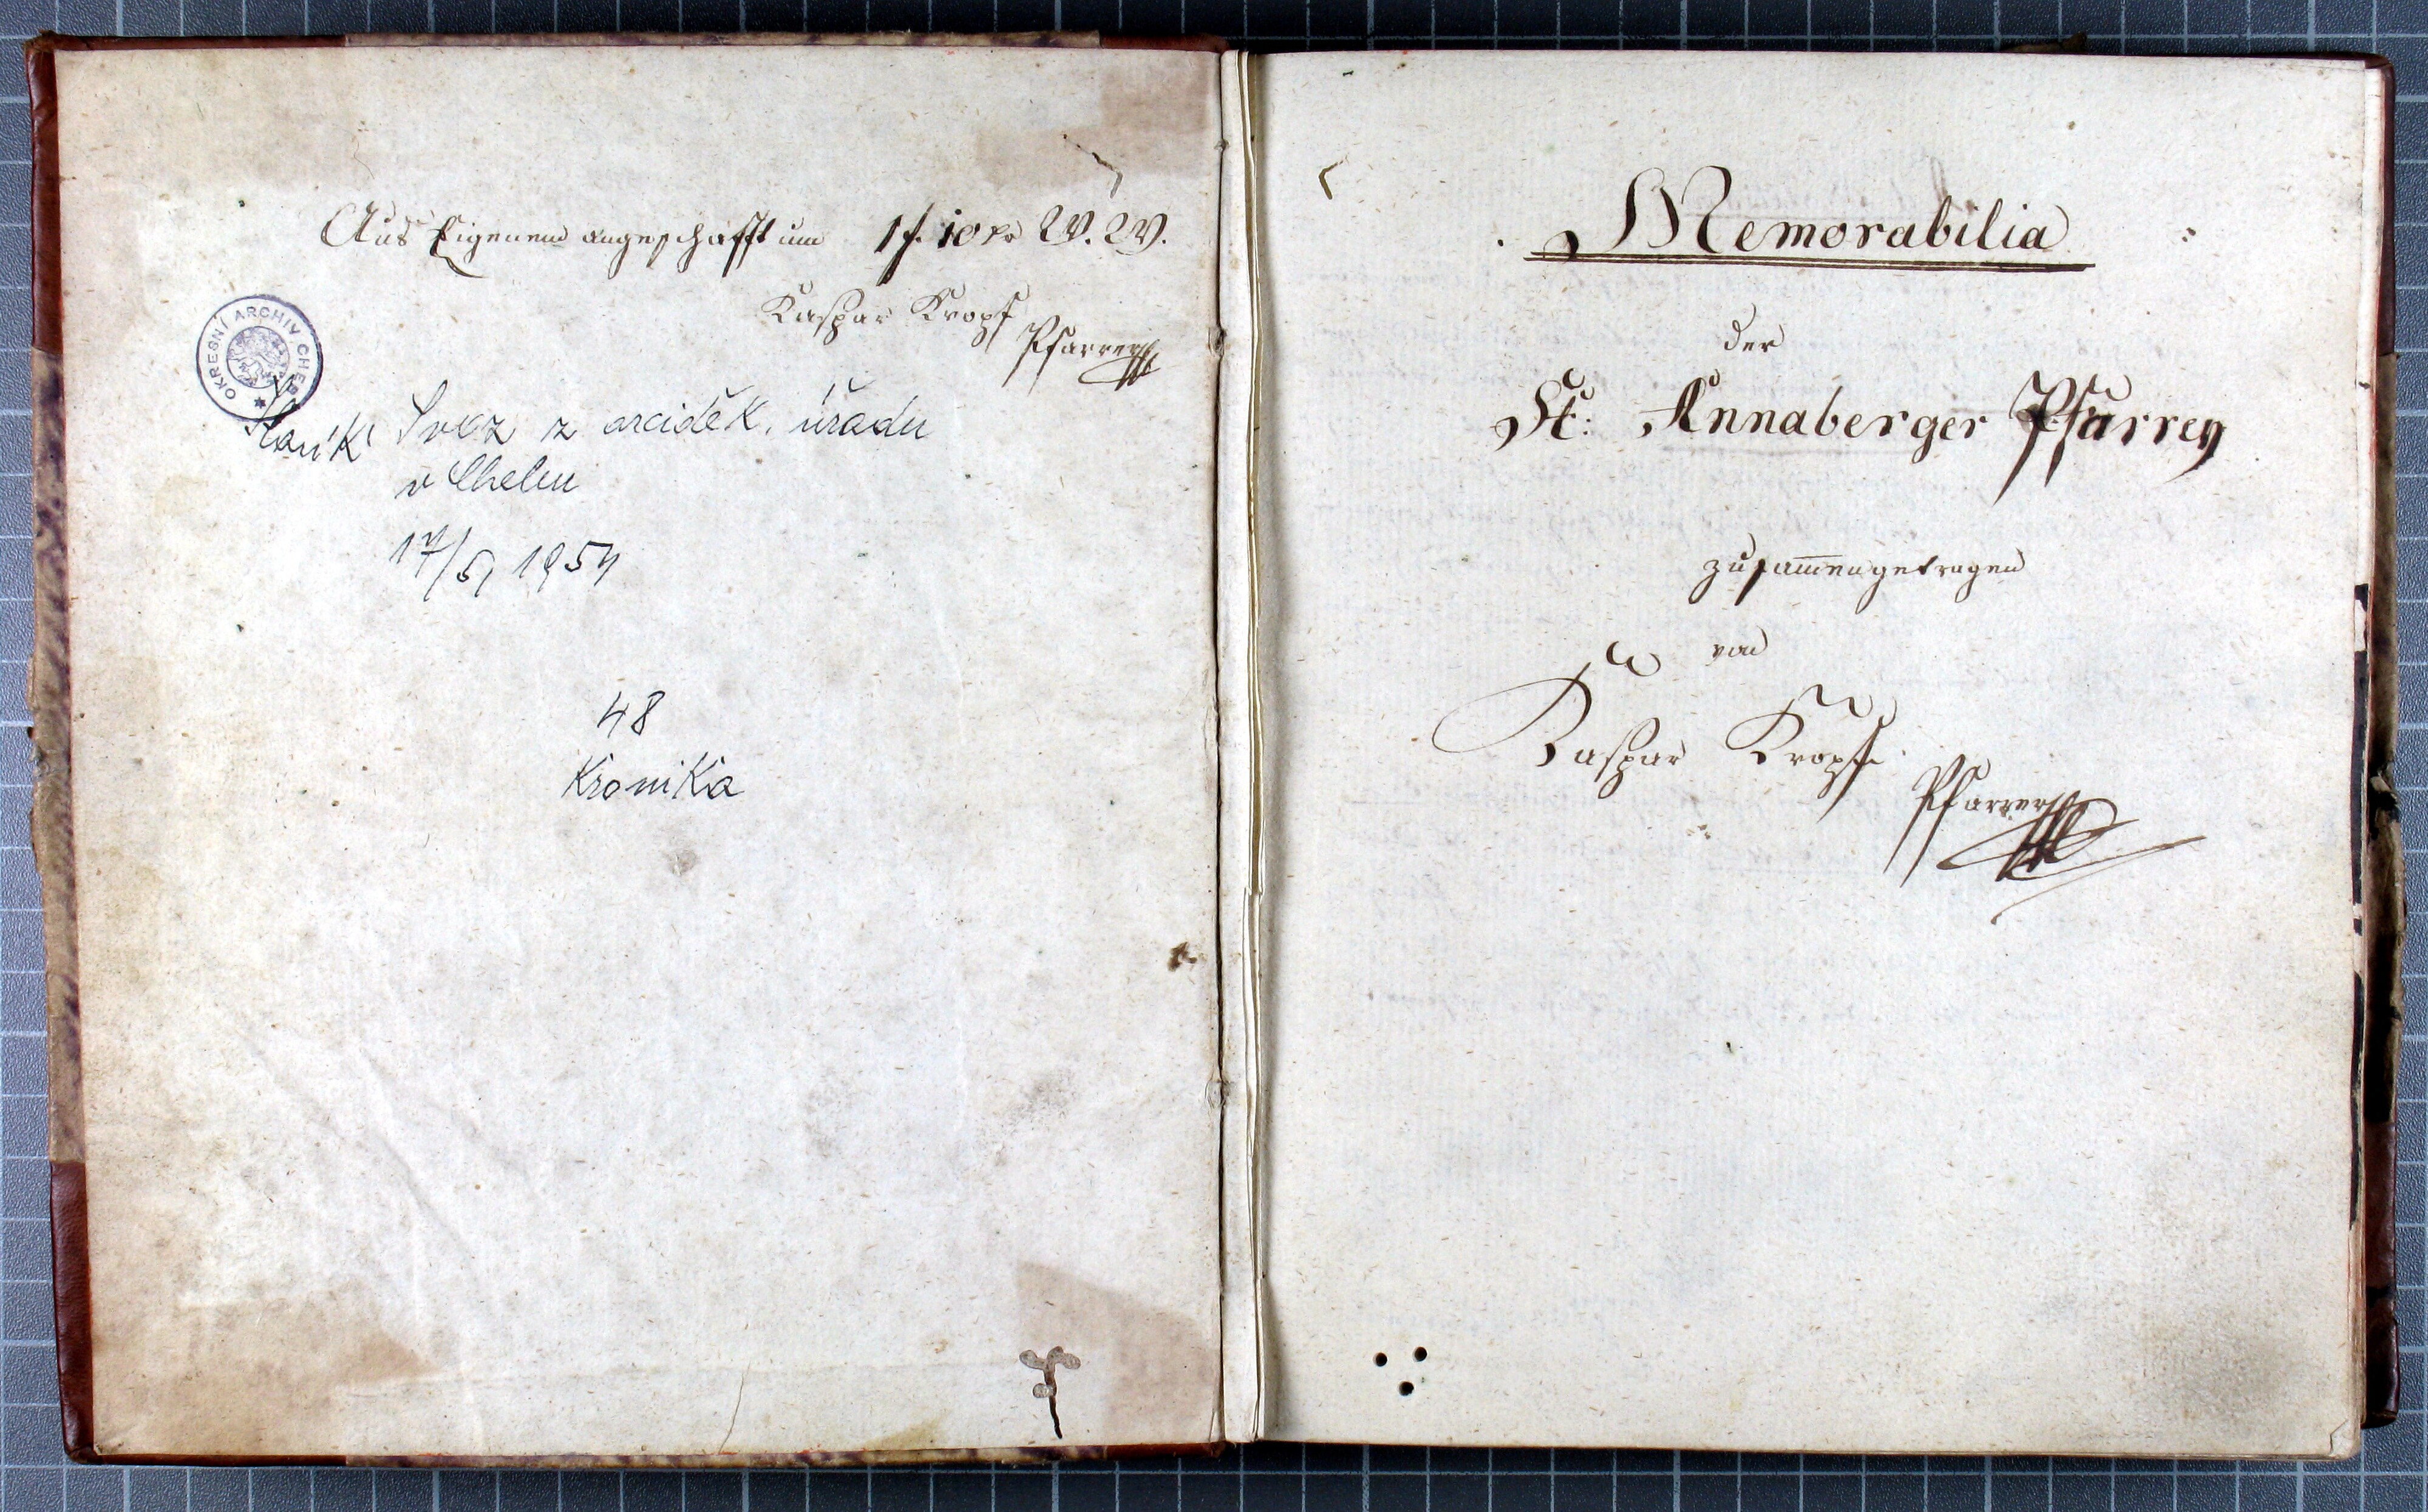 Aus Eigenem angeschafft um 1 f. 10 xr W. W.
Kaspar Kropf
Pfarrer
OKRESNÍ ARCHIV CHEB
Svoz z arciděk. úřadu
v Chebu
17/5 1954
48
Kronika
Memorabilia
der
St: Annaberger Pfarrey
zusam̅engetragen
von
Kaspar Kropf
Pfarrer